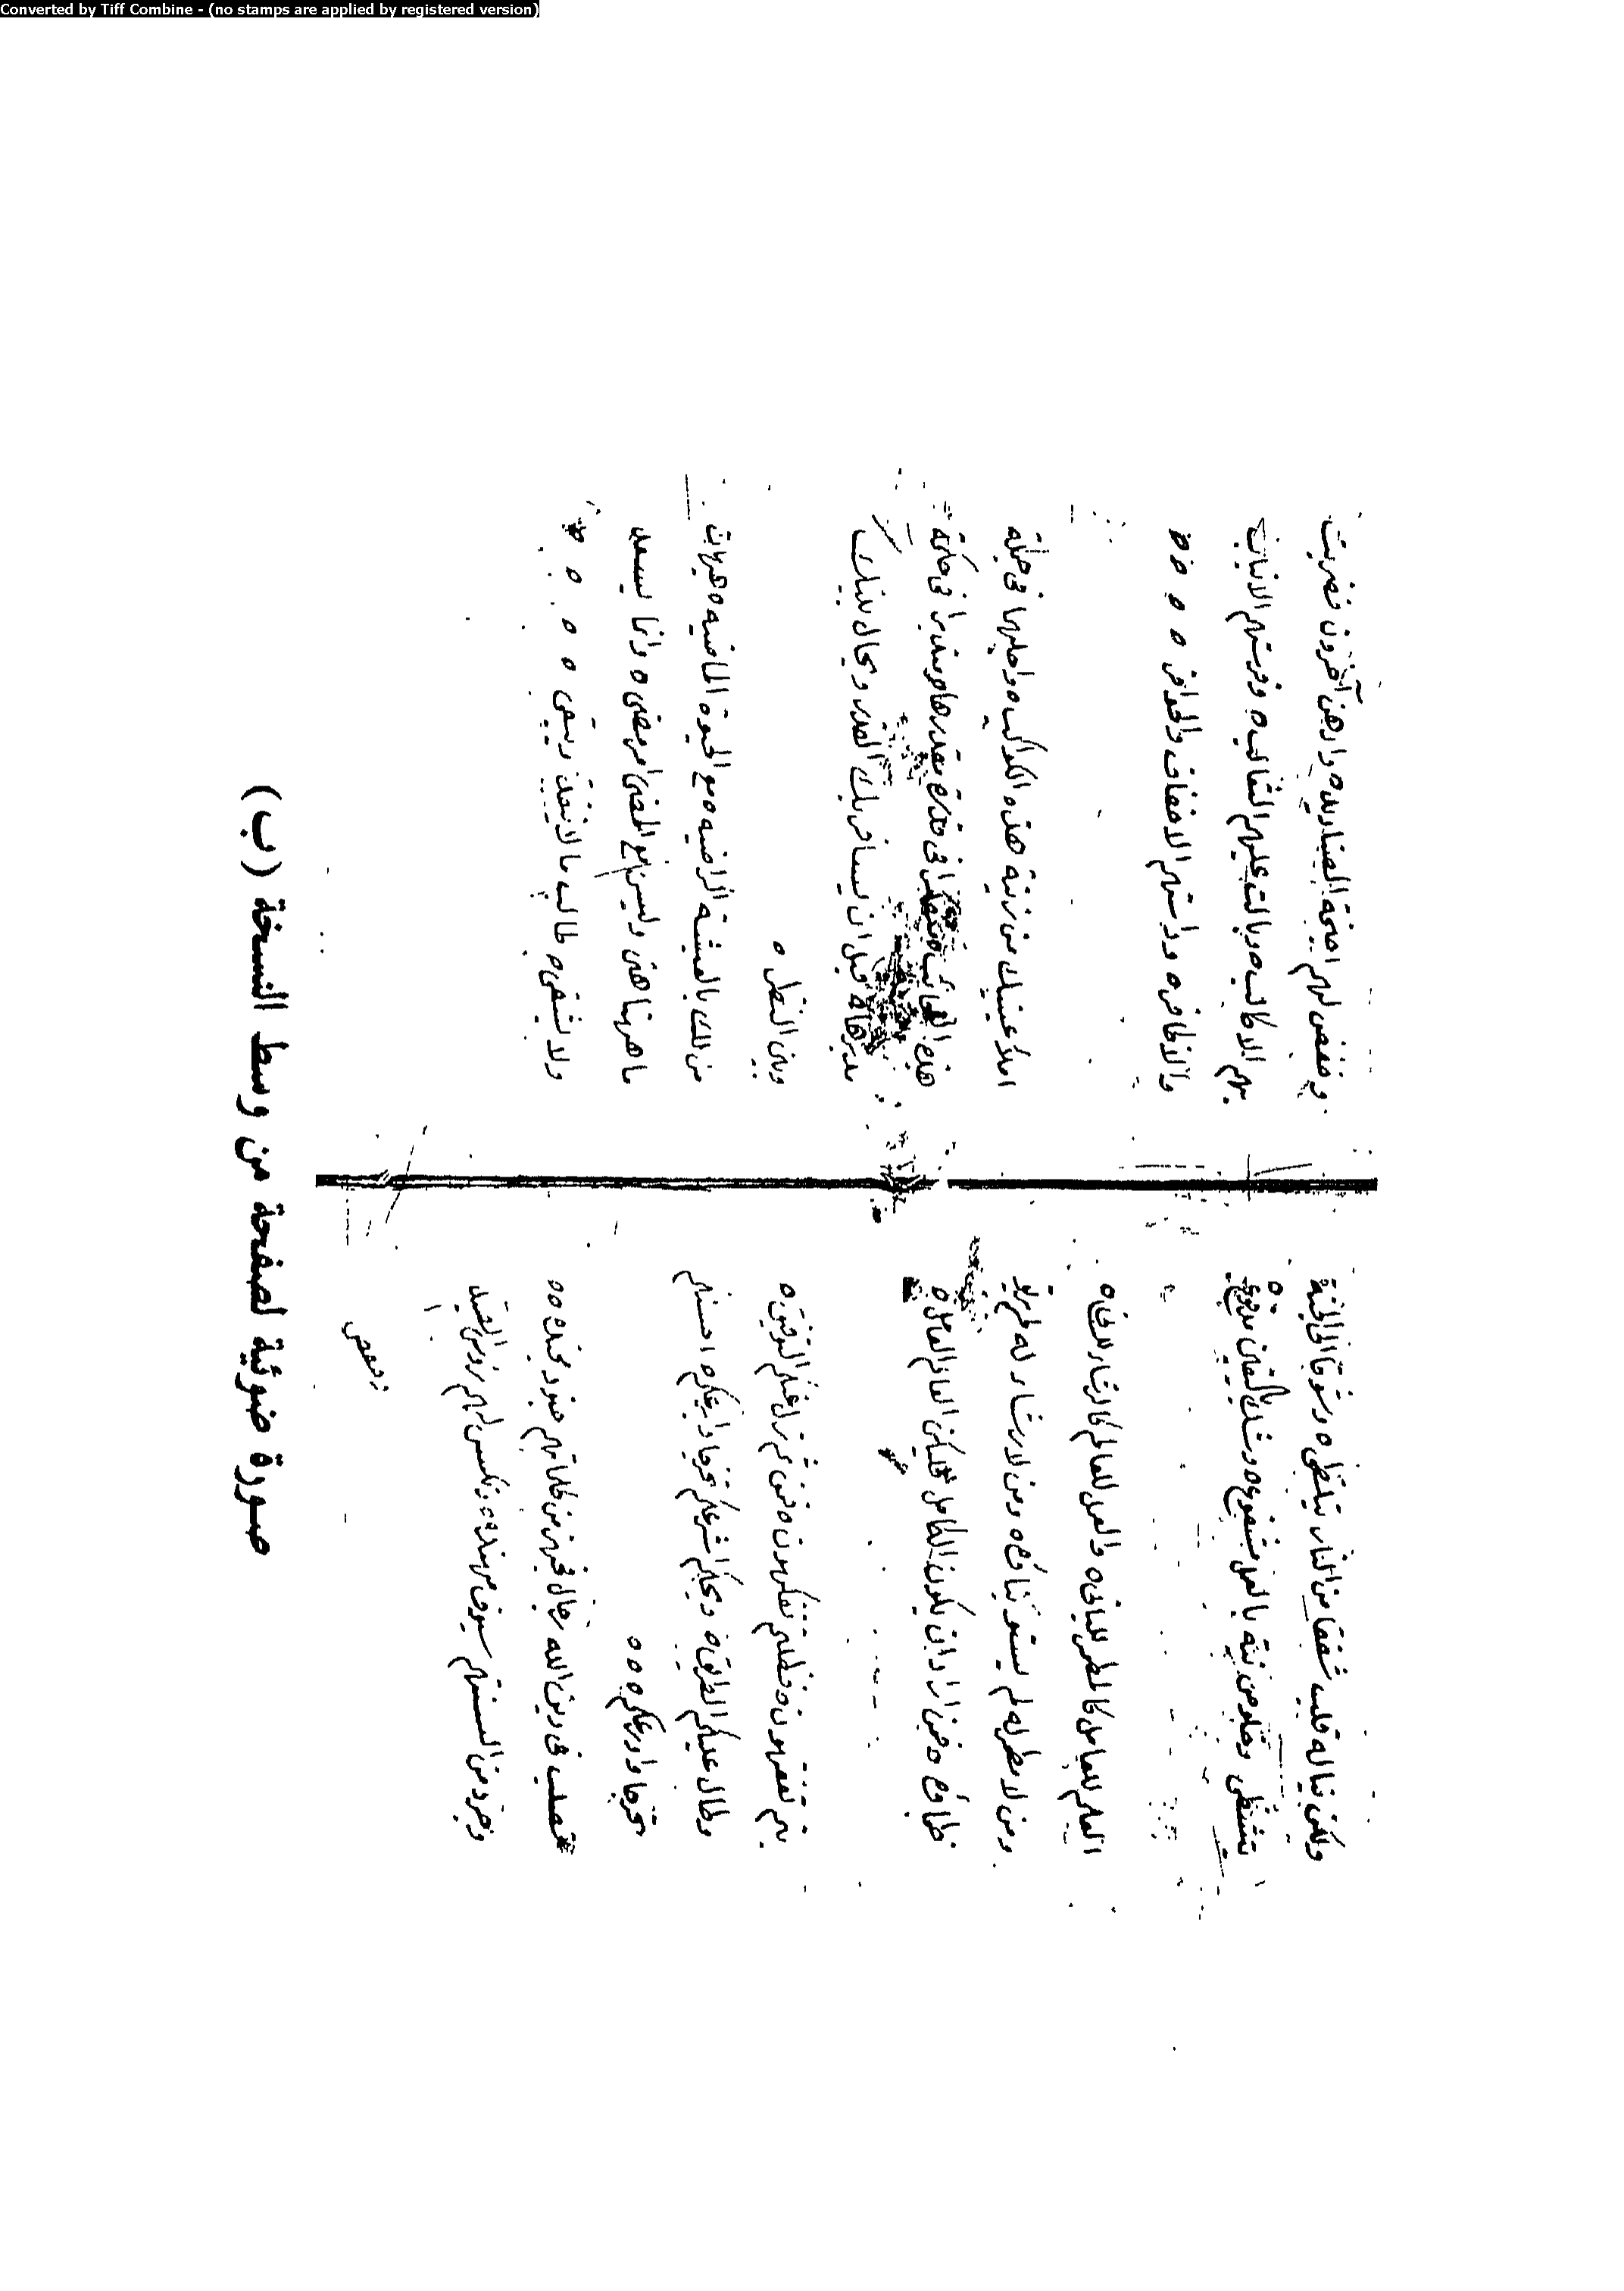 ولكن يناله قلب شفقا من النار يتلظى ه وشوقا الى الجنة
يتشظى وخلوص نية بالعمل مشفوعه وشك باليقين مدفوع
العلم للعامل كالمطمر للبانى ه والعمل للعالم كالرشاء للسانى ه
ومن لا مطمر له لم يستو بناؤه ه ومن لا رشاء له لم يرتو
ظماؤه ه فمن اراد ان يكون الكامل فليكن العالم العامل ه
بتم تفقهون ه فظلتم تتفكهون ه فمن ثم زل عنكم التوفيق ه
وطال عليكم الطريق ه ويحكم اشرعكم تحرجا وارعكم ه احسنكم
تحرجا واورعكم ه ه ه
تصلب فى دين الله رجال فجهز من ظلماتهم جنود مجنده ه ه
وجرد من السنتهم سيوف مهنده ه ونكس لهم رؤس الصيد
وخفض
وخفض لهم اجنحة الصناديد ه وادهن آخرون فضربت
بهم الاكالب ه وبالت عليهم الثعالب ه وفرستهم الانياب
والاظافر ه وداستهم الاخفاف والحوافر ه ه ه ه
املأ عينيك من زينة هذه الكواكب ه واجلهما فى جملة
هذه العجائب ه متفكرا فى قدرة مقدرها ه متدبرا فى حكمة
مدبرها ه قبل ان يسافر بك القدر ويحال بينك
وبين النظر ه
من لك بالعيشة الراضيه ه مع الحيوة الماضيه ه هيهات
ما هو بناهض وليس مع المضى امر مضى ه وانما يسعد
ولا يشقى ه طالب ما لا ينفد ويبقى ه ه ه ه
صورة ضوئية لصفحة من وسط النسخة (ب)
Converted by Tiff Combine - (no stamps are applied by registered version)